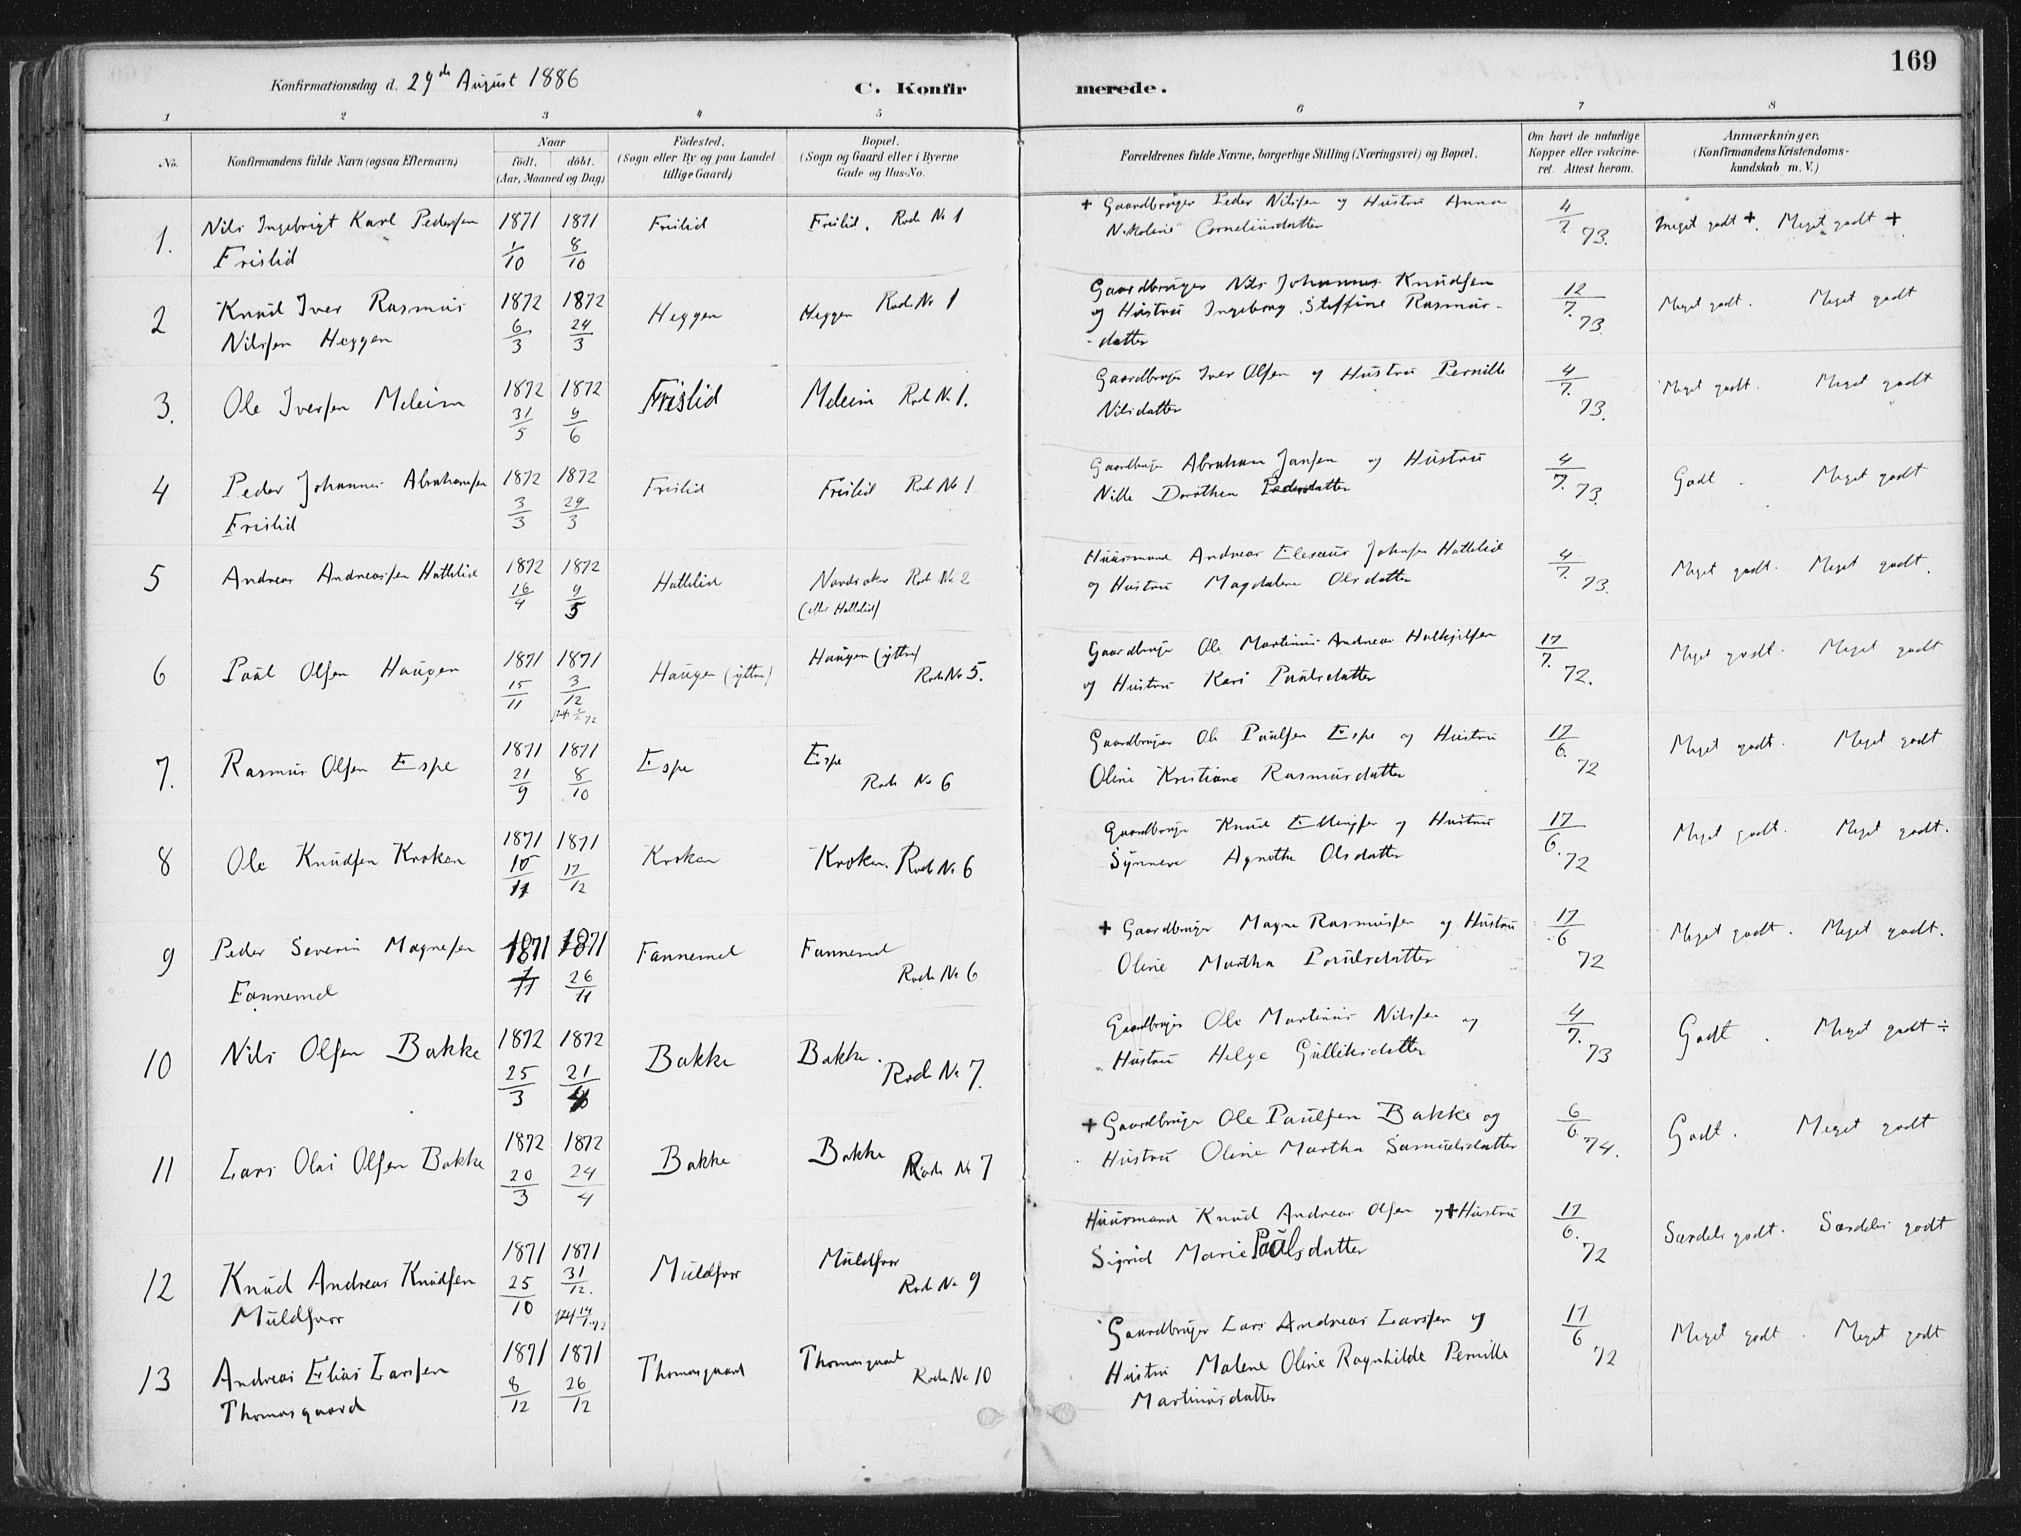 169
Konfirmationsdag d. 29de August 1886
C. Konfirmerede.
1 2 3 4 5 6 7 8
No. Konfirmandens fulde Navn (ogsaa Efternavn) Naar födt. döbt. (Aar, Maaned og Dag) Födested. (Sogn eller By og paa Landet tillige Gaard) Bopæl. (Sogn og Gaard eller i Byerne Gade og Hus-No. Forældrenes fulde Navne, borgerlige Stilling (Næringsvei) og Bopæl. Om havt de naturlige Kopper eller vakcineret. Attest herom. Anmærkninger. (Konfirmandens Kristendomskundskab m. V.)
1. Nils Ingebrigt Karl Pedersen 1871 1871 Frislid Frislid. Rode No 1 + Gaardbruger Peder Nilssen og Hustru Anna 4/7. 73. Meget godt +. Meget godt +
Frislid 1/10 8/10 Nikoline Corneliusdatter
2 Knud Iver Rasmus 1872 1872 Heggen Heggen Rode No 1 Gaardbruger Nils Johannes Knudsen 12/7. 73. Meget godt. Meget godt
Nilssen Heggen 6/3 24/3 og Hustru Ingeborg Steffine Rasmus-
-datter
3. Ole Iversen Meleim 1872 1872 Frislid Meleim Rode No 1. Gaardbruger Iver Olsen og Hustru Pernille 4/7. 73. Meget godt. Meget godt
31/5 9/6 Nilsdatter
4 Peder Johannes Abrahamsen 1872 1872 Frislid Frislid Rode No 1 Gaardbruger Abraham Jansen og Hustru 4/7. 73. Godt. Meget godt
Frislid 3/3 29/3 Nille Dorothea Pedersdatter
5 Andreas Andreassen Hattelid 1872 1872 Hattelid Nordsaker Rode No 2 Huusmand Andreas Eleseus Johnsen Hattelid 4/7. 73. Meget godt. Meget godt.
16/4 9/5 (eller Hattelid) og Hustru Magdalene Olsdatter
6 Paul Olsen Haugen 1871 1871 Haugen (yttre) Haugen (yttre) Gaardbruger Ole Martinus Andreas 17/7. 72. Meget godt. Meget godt
15/11 3/12 Rode No 5. og Hustru Kari Paulsdatter
7. Rasmus Olsen Espe 1871 1871 Espe Espe Gaardbruger Ole Paulsen Espe og Hustru 17/6. 72 Meget godt. Meget godt
21/9 8/10 Rode No 6 Oline Kristiane Rasmusdatter
8 Ole Knudsen Kroken 1871 1871 Kroken Kroken. Rode No 6 Gaardbruger Knud Ellingsen og Hustru 17/6. 72 Meget godt. Meget godt.
10/11 17/12 Synneve Agnethe Olsdatter
9 Peder Severin Magnesen 1871 1871 Fannemel Fannemel + Gaardbruger Magne Rasmussen og Hustru 17/6 72 Meget godt. Meget godt.
Fannemel 7/11 26/11 Rode No 6 Oline Martha Paulsdatter
10 Nils Olsen Bakke 1872 1872 Bakke Bakke. Gaardbruger Ole Martinus Nilssen og 4/7. 73 Godt. Meget godt ÷
25/3 21/4 Rode No 7. Hustru Helge Gulliksdatter
11 Lars Olai Olsen Bakke 1872 1872 Bakke Bakke + Gaardbruger Ole Paulsen Bakke og 6/6. 74. Godt. Meget godt
20/3 24/4 Rode No 7 Hustru Oline Martha Samuelsdatter
12 Knud Andreas Knudsen 1871 1871 Muldsvor Muldsvor Huusmand Knud Andreas Olsen og + Hustru 17/6. 72 Særdeles godt. Særdeles godt
Muldsvor 25/10 31/12. Rode No 9 Sigrid Marie Paulsdatter
13 Andreas Elias Larssen 1871 1871 Thomasgaard Thomasgaard Gaardbruger Lars Andreas Larssen og 17/6 72 Meget godt. Meget godt
Thomasgaard 8/12 26/12 Rode No 10 Hustru Malene Oline Ragnhilde Pernille
Martinusdatter